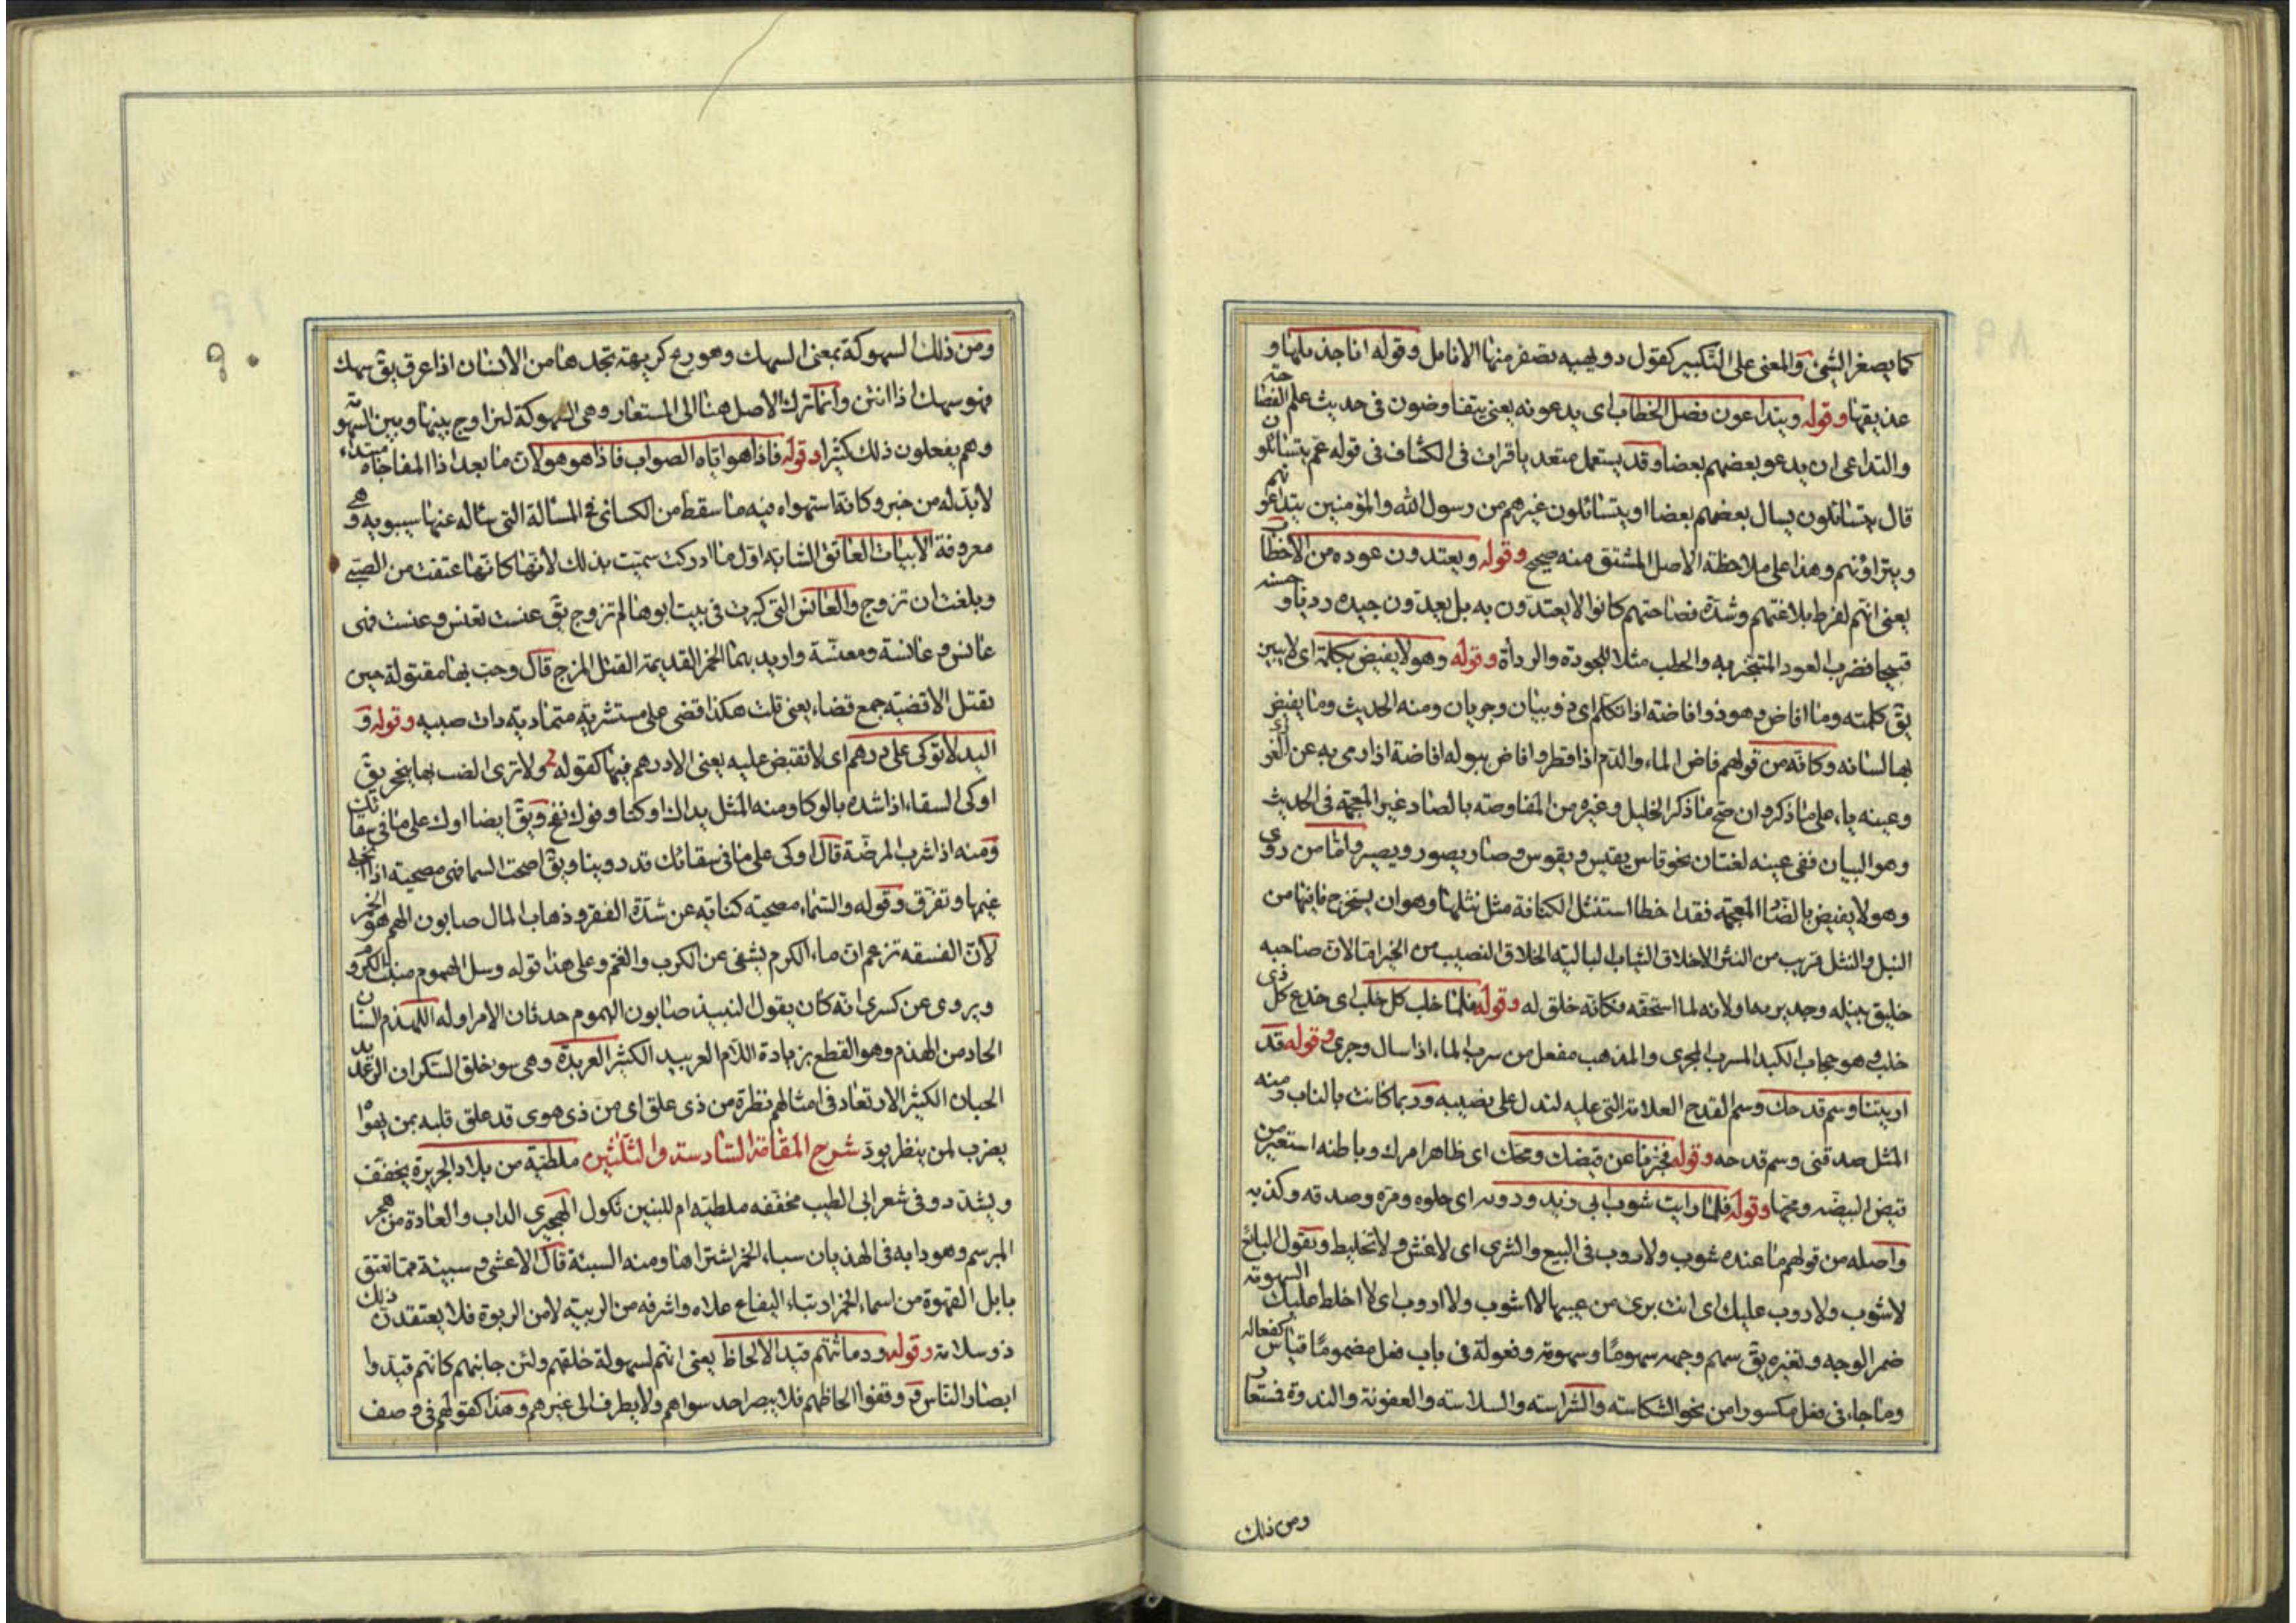 كما يصغر الشئ والمعنى على التكبير كقول دويهية تصفر منها الانامل وقوله انا جذيلها و
عذيقها وقوله ويتداعون فصل الخطاب اى يدعونه يعنى يتفاوضون فى حديث علم الفصاحة
والتداعى ان يدعو بعضهم بعضا وقد يستعمل متعديا قرات فى الكشاف فى قوله عم يتسائلون
قال يتسائلون يسال بعضهم بعضا او يتسائلون غيرهم من رسول الله والمؤمنين يتداعونهم
ويتراؤنهم وهذا على ملاحظة الاصل المشتق منه صحيح وقوله ويعتدون عوده من الاحطاب
يعنى انهم لفرط بلاغتهم وشدة فصاحتهم كانوا لا يعتدون به بل يعدون جيده رديا وحسنه
قبيحا فضرب العود المتبخر به والحطب مثلا للجودة والرداة وقوله وهو لا يفيض بكلمة اى لا يبين
يق كلمته وما افاض وهو ذو افاضة اذا تكلم اى ذو بيان وجريان ومنه الحديث وما يفيض
بها لسانه وكانه من قولهم فاض الماء والدم اذا قطر وافاض ببوله افاضة اذا رمى به عن الغورى
وعينه ياء على ما ذكر وان صح ما ذكر الخليل وغيره من المفاوصة بالصاد غير المعجمة فى الحديث
وهو البيان ففى عينه لغتان نحو قاس يقيس ويقوس وصار يصور ويصير واما من روى
وهو لا يفيض بالضاد المعجمة فقد اخطا استنثل الكنانة مثل نثلها وهو ان يستخرج ما فيها من
النبل والنثل قريب من النثر الاخلاق الثياب البالية الخلاق النصيب من الخير اما لان صاحبه
خليق بنيله وجدير بها ولانه لما استحقه فكانه خلق له وقوله فلما خلب كل خلب اى خدع كل ذى
خلب وهو حجاب الكبد المسرب المجرى والمذهب مفعل من سرب الماء اذا سال وجرى وقوله قد
اريتنا وسم قدحك وسم القدح العلامة التى عليه لتدل على نصيبه وربما كانت بالناب ومنه
المثل صدقنى وسم قدحه وقوله فخبرنا عن قيضك ومحك اى ظاهر امرك وباطنه استعير من
قيض البيضه ومحها وقوله فلما رايت شوب ابى زيد وروبه اى حلوه ومره وصدقه وكذبه
واصله من قولهم ما عنده شوب ولا روب فى البيع والشرى اى لا غش ولا تخليط وتقول البائع
لا شوب ولا روب عليك اى انت برى من عيبها لا اشوب ولا اروب اى لا اخلط عليك السهومة
ضمر الوجه وتغيره يق سهم وجهه سهوما وسهومة وفعولة فى باب فعل مضموما قياس كفعاله
وما جاء فى فعل مكسورا من نحو الشكاسته والشراسته والسلاسته والعفونة والندوة فمستعار
ومن ذلك
٩٠
ومن ذلك السهوكة بمعنى السهك وهو ريح كريهة تجدها من الانسان اذا عرق يق سهك
فهو سهك اذا انتن وانما ترك الاصل هنا الى المستعار وهى السهوكة لتزاوج بينها وبين السهومة
وهم يفعلون ذلك كثيرا وقوله فاذا هو اياه الصواب فاذا هو هو لان ما بعد اذا المفاجاة مبتداء
لا بد له من خبر وكانه استهواه فيه ما سقط من الكسائى فى المسالة التى سئاله عنها سيبويه وهى
معروفة الابيات العاتق الشابة اول ما ادركت سميت بذلك لانها كانها عتقت من الصبى
وبلغت ان تزوج والعانس التى كبرت فى بيت ابوها لم تزوج يق عنست تعنس وعنست فهى
عانس وعانسة ومعنسة واريد بها الخمر القديمة القتل المزج قال وحب بها مقتولة حين
تقتل الاقضية جمع قضاء يعنى قلت هكذا قضى على مستشرية متمادية ذات صبيه وقوله و
اليد لا توكى على درهم اى لا تقبض عليه يعنى لا درهم فيها كقوله ولا ترى الضب بها ينجحر يق
اوكى السقاء اذا شده بالوكا ومنه المثل يداك اوكتا وفوك نفخ ويق ايضا اوك على ما فى سقائك
ومنه اذا شرب المرضة قال اوكى على ما فى سقائك قد روينا ويق اصحت السما فهى مصحية اذا انجلى
غيمها وتفرق وقوله والسماء مصحية كناية عن شدة الفقر وذهاب المال صابون الهم هو الخمر
لان الفسقه تزعم ان ماء الكرم يشفى من الكرب والغم وعلى هذا قوله وسل الهموم
ويروى عن كسرى انه كان يقول النبيذ صابون الهموم حدثان الامر اوله اللهذم السنان
الحاد من الهذم وهو القطع بزيادة اللام العربيد الكثير العربدة وهى سو خلق السكران الرعديد
الجبان الكثير الارتعاد فى امثالهم نظرة من ذى علق اى من ذى هوى قد علق قلبه بمن يهواه
يضرب لمن ينظر بود شرح المقامة السادسة والثلثين ملطية من بلاد الجزيرة يخفف
ويشدد وفى شعر ابى الطيب مخففه ملطية ام للبنين ثكول الهجيرى الداب والعادة من هجر
المبرسم وهو دابه فى الهذيان سباء الخمر اشتراها ومنه السبئة قال الاعشى وسبيئة مما تعتق
بابل القهوة من اسماء الخمر ارتباء اليفاع علاه واشرفه من الربية لا من الربوة فلا يعتقدن ذلك
ذو سلامة وقوله ودماثتهم قيد الالحاظ يعنى انهم لسهولة خلقهم ولين جانبهم كانهم قيدوا
ابصار الناس ووقفوا الحاظهم فلا يبصر احد سواهم ولا يطرف الى غيرهم وهذا كقولهم فى وصف